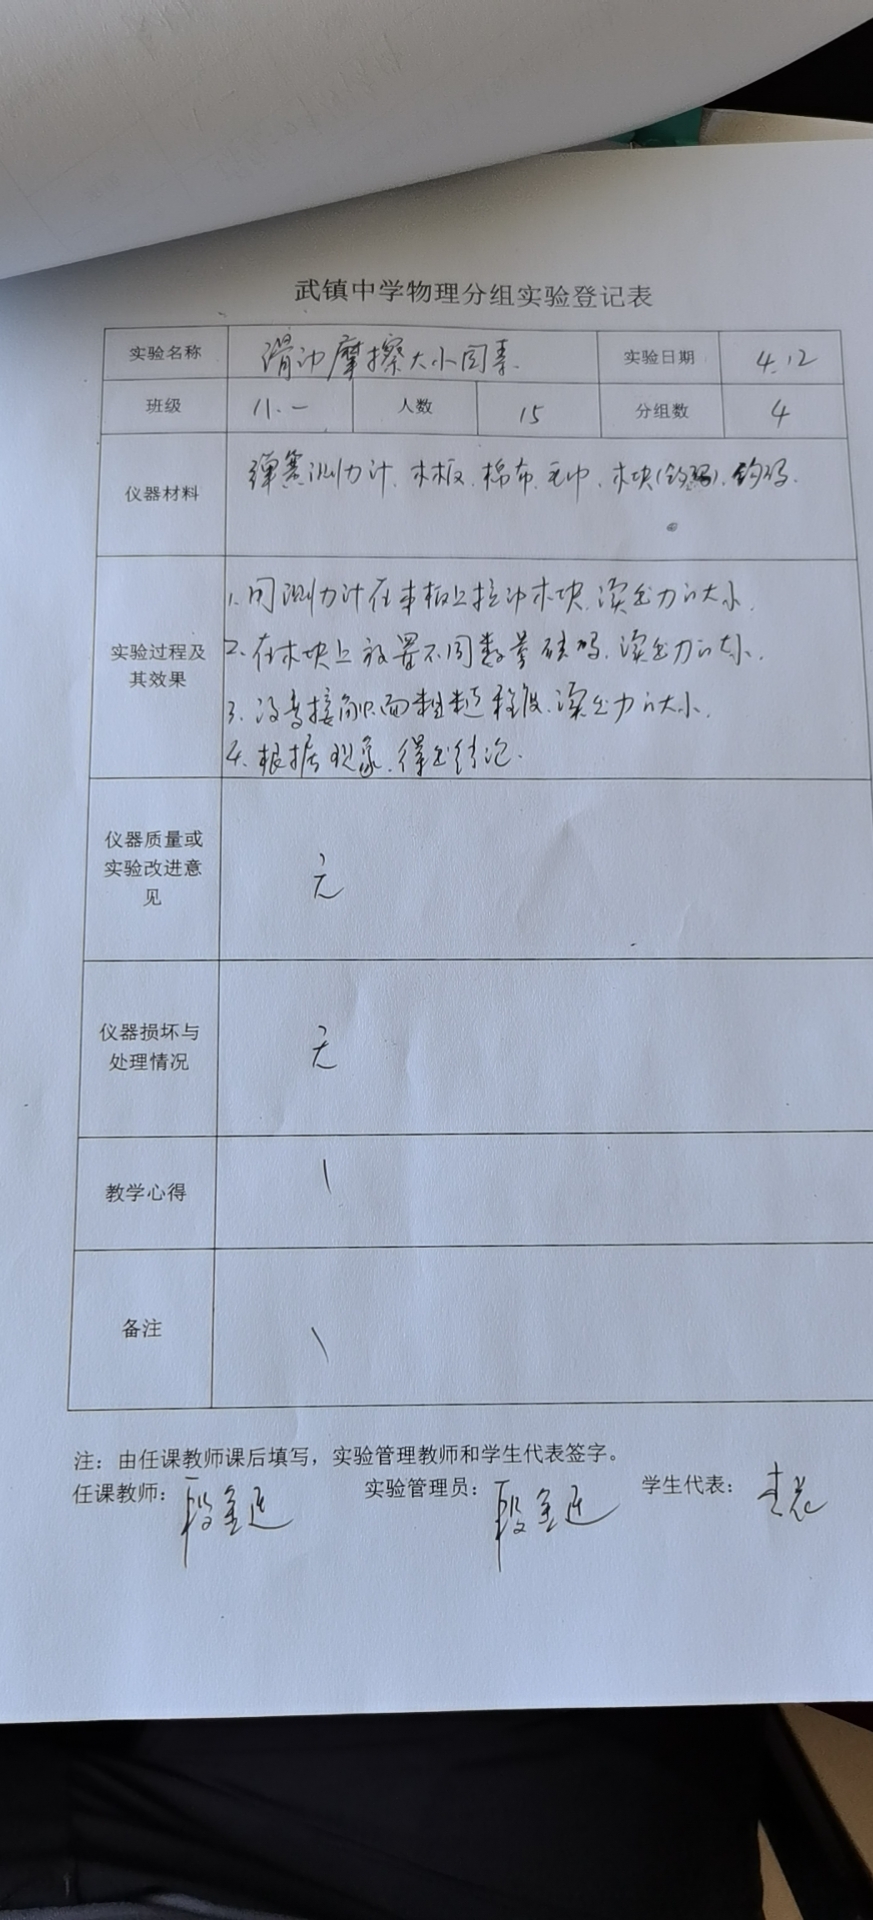 武镇中学物理分组实验登记表
实验名称 滑动摩擦大小因素. 实验日期 4.12
班级 八.一 人数 15 分组数 4
仪器材料 弹簧测力计. 木板. 棉布. 毛巾. 木块(钩码). 钩码.
实验过程及其效果
1. 用测力计在木板上拉动木块. 读出力的大小.
2. 在木块上放置不同数量砝码. 读出力的大小.
3. 改变接触面粗糙程度. 读出力的大小.
4. 根据现象. 得出结论.
仪器质量或
实验改进意
见
无
仪器损坏与
处理情况
无
教学心得 \
备注 \
注：由任课教师课后填写，实验管理教师和学生代表签字。
任课教师： 实验管理员： 学生代表：